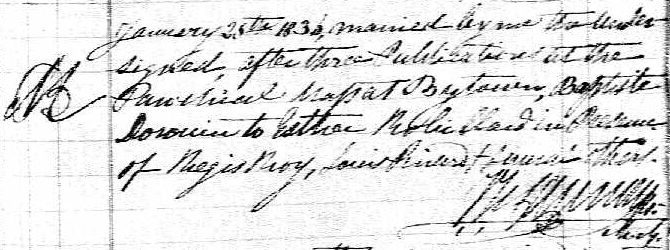 January 28th 1836, married by me the under
signed, after three Publications at the
Parochial Mass at Bytown, Baptiste
to Esther Robillard in Presence
of Regis Roy, Louis Pinard & many others.